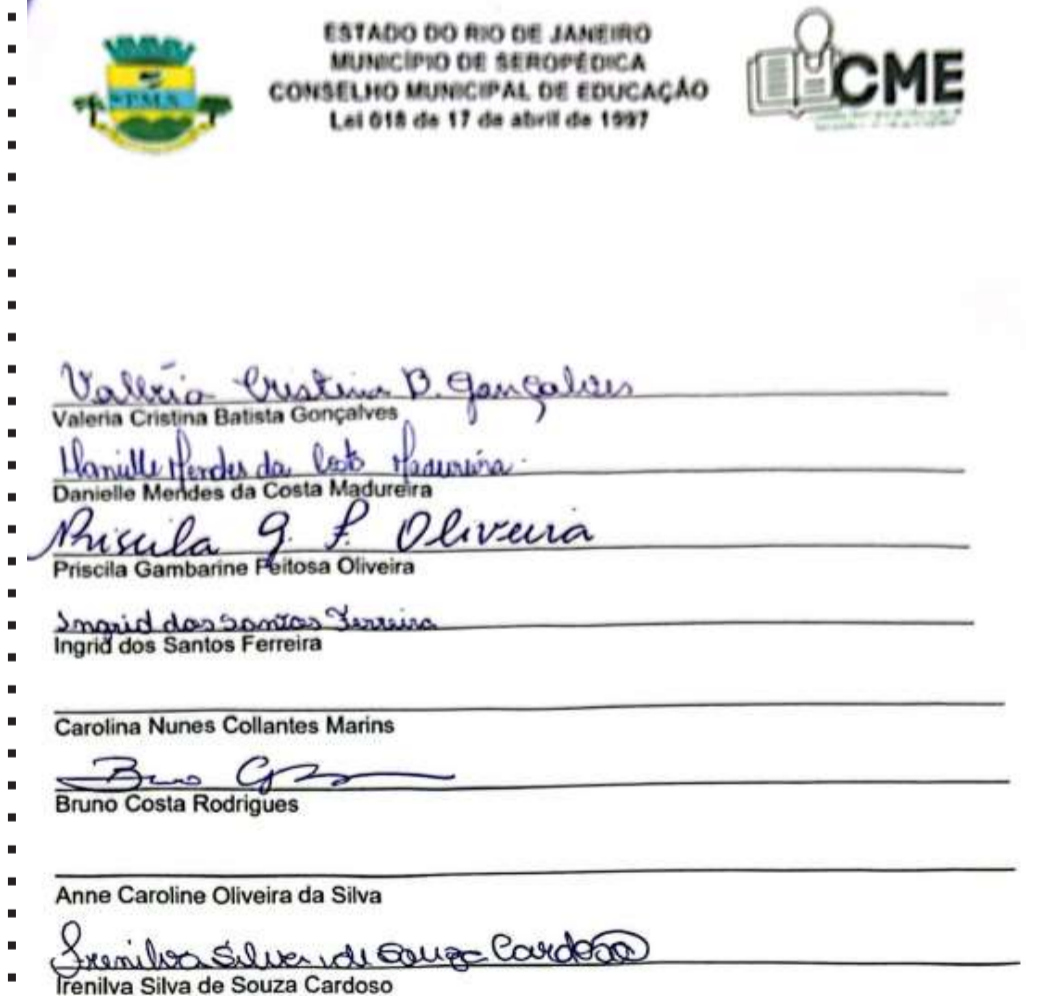 ESTADO DO RIO DE JANEIRO
MUNICÍPIO DE SEROPÉDICA
CONSELHO MUNICIPAL DE EDUCAÇÃO
Lei 018 de 17 de abril de 1997
SPMA
CME
Valéria Cristina B. Gonçalves
Valeria Cristina Batista Gonçalves
Danielle Mendes da Costa Madureira
Danielle Mendes da Costa Madureira
Priscila G. F. Oliveira
Priscila Gambarine Feitosa Oliveira
Ingrid dos Santos Ferreira
Ingrid dos Santos Ferreira
Carolina Nunes Collantes Marins
Bruno
Bruno Costa Rodrigues
Anne Caroline Oliveira da Silva
Irenilva Silva de Souza Cardoso
Irenilva Silva de Souza Cardoso